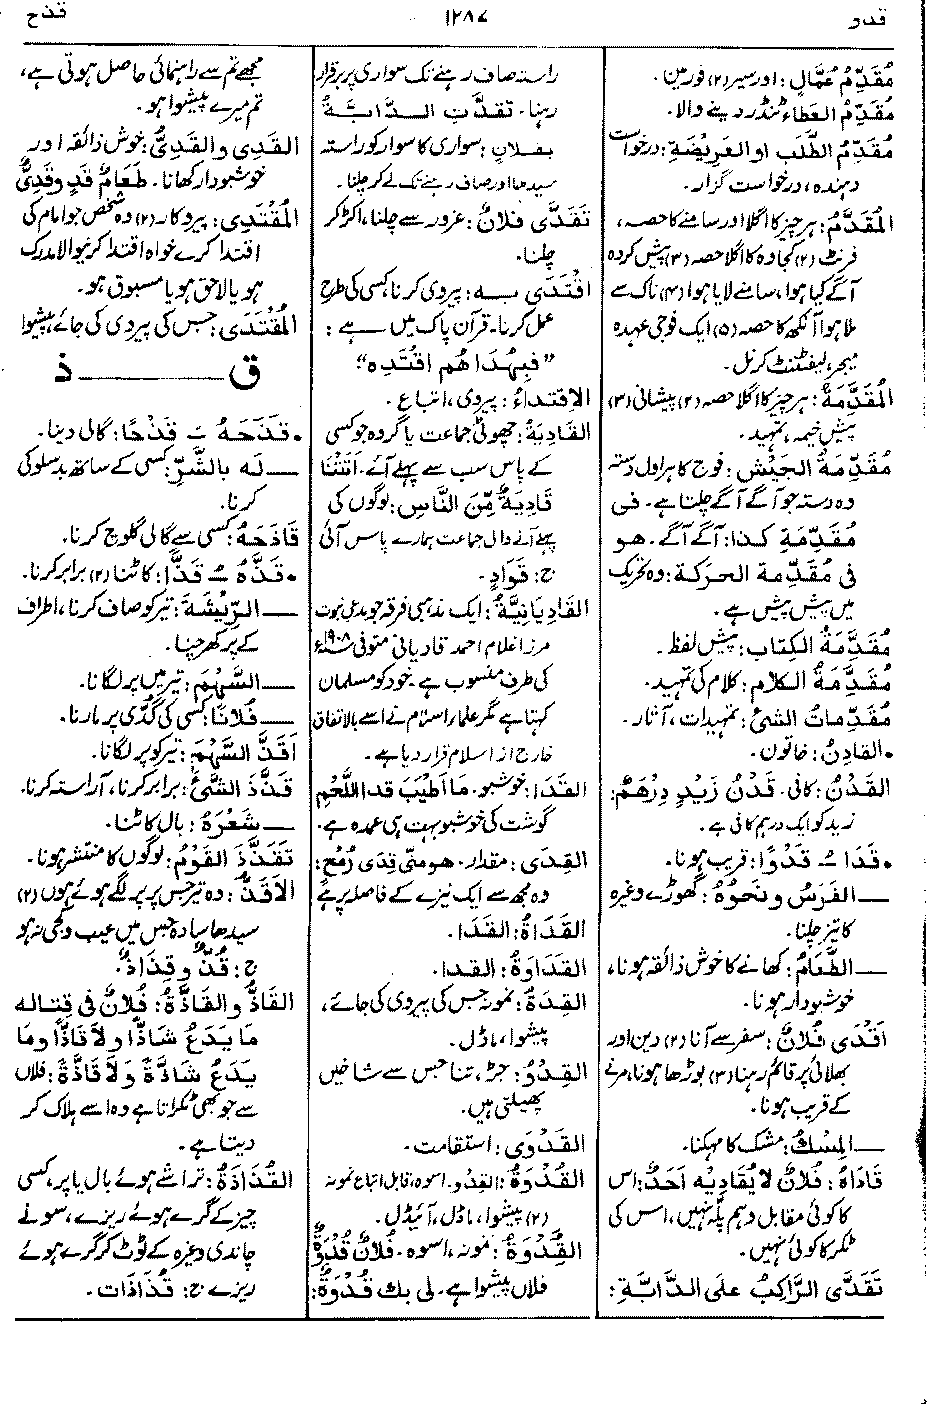 قدو
۱۲۸۷
قدح
مُقَدِّمُ عُمَّالٍ: اور سیر (۲) فورمین۔
مُقَدِّمُ العَطاءِ ٹنڈر دینے والا۔
مُقَدِّمُ الطَّلَبِ اوالعَرِیْضَةِ: درخواست
دہندہ، درخواست گزار۔
المُقَدَّمُ: ہر چیز کا اگلا اور سامنے کا حصہ،
فرنٹ (۲) کجاوہ کا اگلا حصہ (۳) پیش کردہ
آگے کیا ہوا، سامنے لایا ہوا (۴) ناک سے
ملا ہوا آنکھ کا حصہ (۵) ایک فوجی عہدہ
میجر، لیفٹننٹ کرنل۔
المُقَدِّمَةُ: ہر چیز کا اگلا حصہ (۲) پیشانی (۳)
پیش خیمہ، تمہید۔
مُقَدِّمَةُ الجَیْشِ: فوج کا ہراول دستہ
وہ دستہ جو آگے آگے چلتا ہے۔ فی
مُقَدِّمَةِ کذا: آگے آگے۔ ھو
فی مُقَدِّمة الحرکة: وہ تحریک
میں پیش پیش ہے۔
مُقَدِّمَةُ الکِتابِ: پیش لفظ۔
مُقَدِّمَةُ الکلامِ: کلام کی تمہید۔
مُقَدِّماتُ الشئِ: تمہیدات، آثار۔
• القادِنُ: خاتون۔
القَدْنُ: کافی۔ قَدْنُ زَیْدٍ دِرْهَمٌ:
زید کو ایک درہم کافی ہے۔
• قَدَا ـُ قَدْوًا: قریب ہونا۔
ــــ الفَرَسُ ونَحْوُهُ: گھوڑے وغیرہ
کا تیز چلنا۔
ــــ الطَّعَامُ: کھانے کا خوش ذائقہ ہونا،
خوشبودار ہونا۔
اَقْدَی فُلانٌ: سفر سے آنا (۲) دین اور
بھلائی پر قائم رہنا (۳) بوڑھا ہونا، مرنے
کے قریب ہونا۔
ــــ المِسْكُ: مشک کا مہکنا۔
قَادَاهُ: فُلانٌ لا یُقَادِیْهِ اَحَدٌ: اس
کا کوئی مقابل و ہم پلہ نہیں، اس کی
ٹکر کا کوئی نہیں۔
تَقَدَّی الرَّاکِبُ علی الدَّابَّةِ:
راستہ صاف رہنے تک سواری پر برقرار
رہنا۔ تقدَّتِ الدَّابَّةُ
بفلانٍ: سواری کا سوار کو راستہ
سیدھا اور صاف رہنے تک لے کر چلنا۔
تَقَدَّی فُلانٌ: غرور سے چلنا، اکڑ کر
چلنا۔
اقْتَدَی بـه: پیروی کرنا، کسی کی طرح
عمل کرنا۔ قرآن پاک میں ہے:
”فَبِهُدَاهُمُ اقْتَدِه“
الاِقتداءُ: پیروی، اتباع۔
القَادِیَةُ: چھوٹی جماعت یا گروہ جو کسی
کے پاس سب سے پہلے آئے۔ اَتَتْنَا
قَادِیَةٌ مِّنَ النَّاسِ: لوگوں کی
پہلے آنے والی جماعت ہمارے پاس آئی
ج: قَوادٍ۔
القَادِیَانِیَّةُ: ایک مذہبی فرقہ جو مدعی نبوت
مرزا غلام احمد قادیانی متوفی ۱۹۰۸ء
کی طرف منسوب ہے۔ خود کو مسلمان
کہتا ہے مگر علماء اسلام نے اسے بالاتفاق
خارج از اسلام قرار دیا ہے۔
القَدَا: خوشبو۔ مَا اَطْیَبَ قدا اللَّحْمِ
گوشت کی خوشبو بہت ہی عمدہ ہے۔
القِدَی: مقدار۔ هومنّی قِدَی رُمْحٍ:
وہ مجھ سے ایک نیزے کے فاصلہ پر ہے
القَدَاةُ: القَدَا۔
القَدَاوَةُ: القدا۔
القِدَةُ: نمونہ جس کی پیروی کی جائے،
پیشوا، ماڈل۔
القِدْوُ: جڑ، تنا جس سے شاخیں
پھیلتی ہیں۔
القَدْوَی: استقامت۔
القُدْوَةُ: القِدْو۔ اسوہ، قابل اتباع نمونہ
(۲) پیشوا، ماڈل، آئیڈل۔
القُدْوَةُ: نمونہ، اسوہ۔ فلانٌ قُدْوَةٌ
فلاں پیشوا ہے۔ لی بك قُدْوَةٌ:
مجھے تم سے راہنمائی حاصل ہوتی ہے،
تم میرے پیشوا ہو۔
القَدِی والقَدِیُّ: خوش ذائقہ اور
خوشبودار کھانا۔ طَعَامٌ قَدٍ وقَدِیٌّ
المُقْتَدِی: پیروکار (۲) وہ شخص جو امام کی
اقتدا کرے خواہ اقتدا کرنیوالا مدرک
ہو یا لاحق ہو یا مسبوق ہو۔
المُقْتَدَی: جس کی پیروی کی جائے، پیشوا
ق ــــــــ ذ
• قَذَحَهُ ـَ قَذْحًا: گالی دینا۔
ــــ لَه بالشَّرِّ: کسی کے ساتھ بدسلوکی
کرنا۔
قَاذَحَهُ: کسی سے گالی گلوچ کرنا۔
• قَذَّهُ ـُ قَذًّا: کاٹنا (۲) برابر کرنا۔
ــــ الرِّیْشَةَ: تیر کو صاف کرنا، اطراف
کے پر کھرچنا۔
ــــ السَّهْمَ: تیر میں پر لگانا۔
ــــ فُلَانًا: کسی کی گدّی پر مارنا۔
اَقَذَّ السَّهْمَ: تیر کو پر لگانا۔
قَذَّذَ الشَّئَ: برابر کرنا، آراستہ کرنا۔
ــــ شَعْرَهُ: بال کاٹنا۔
تَقَذَّذَ القَوْمُ: لوگوں کا منتشر ہونا۔
الاَقَذُّ: وہ تیر جس پر پر لگے ہوئے ہوں (۲)
سیدھا سادہ جس میں عیب و کجی نہ ہو
ج: قُذٌّ وقِذَاذٌ۔
القَاذُّ والقَاذَّةُ: فُلَانٌ فی قتاله
مَا یَدَعُ شَاذًّا ولَا قَاذًّا وما
یَدَعُ شَاذَّةً وَلَا قَاذَّةً: فلاں
سے جو بھی ٹکراتا ہے وہ اسے ہلاک کر
دیتا ہے۔
القُذَاذَةُ: تراشے ہوئے بال یا پر، کسی
چیز کے گرے ہوئے ریزے، سونے
چاندی وغیرہ کے ٹوٹ کر گرے ہوئے
ریزے ج: قُذَاذَات۔